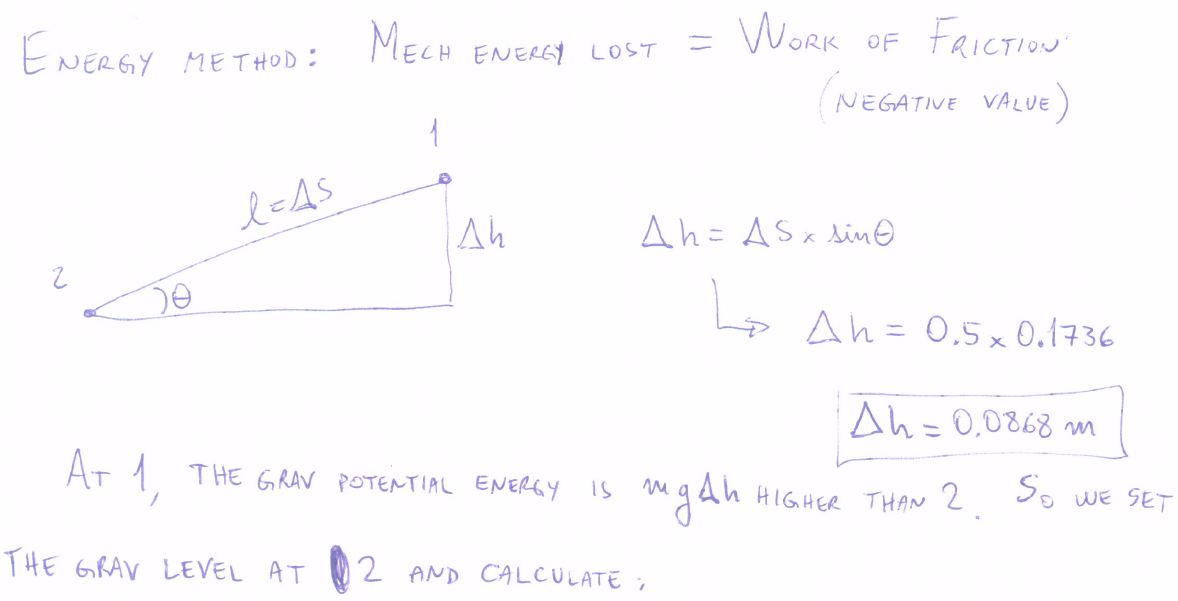 ENERGY METHOD: MECH ENERGY LOST = WORK OF FRICTION
(NEGATIVE VALUE)
1
l=ΔS
Δh
Δh = ΔS × sinθ
2
θ
Δh = 0.5 × 0.1736
Δh = 0.0868 m
AT 1, THE GRAV POTENTIAL ENERGY IS mgΔh HIGHER THAN 2. SO WE SET
THE GRAV LEVEL AT 2 AND CALCULATE: